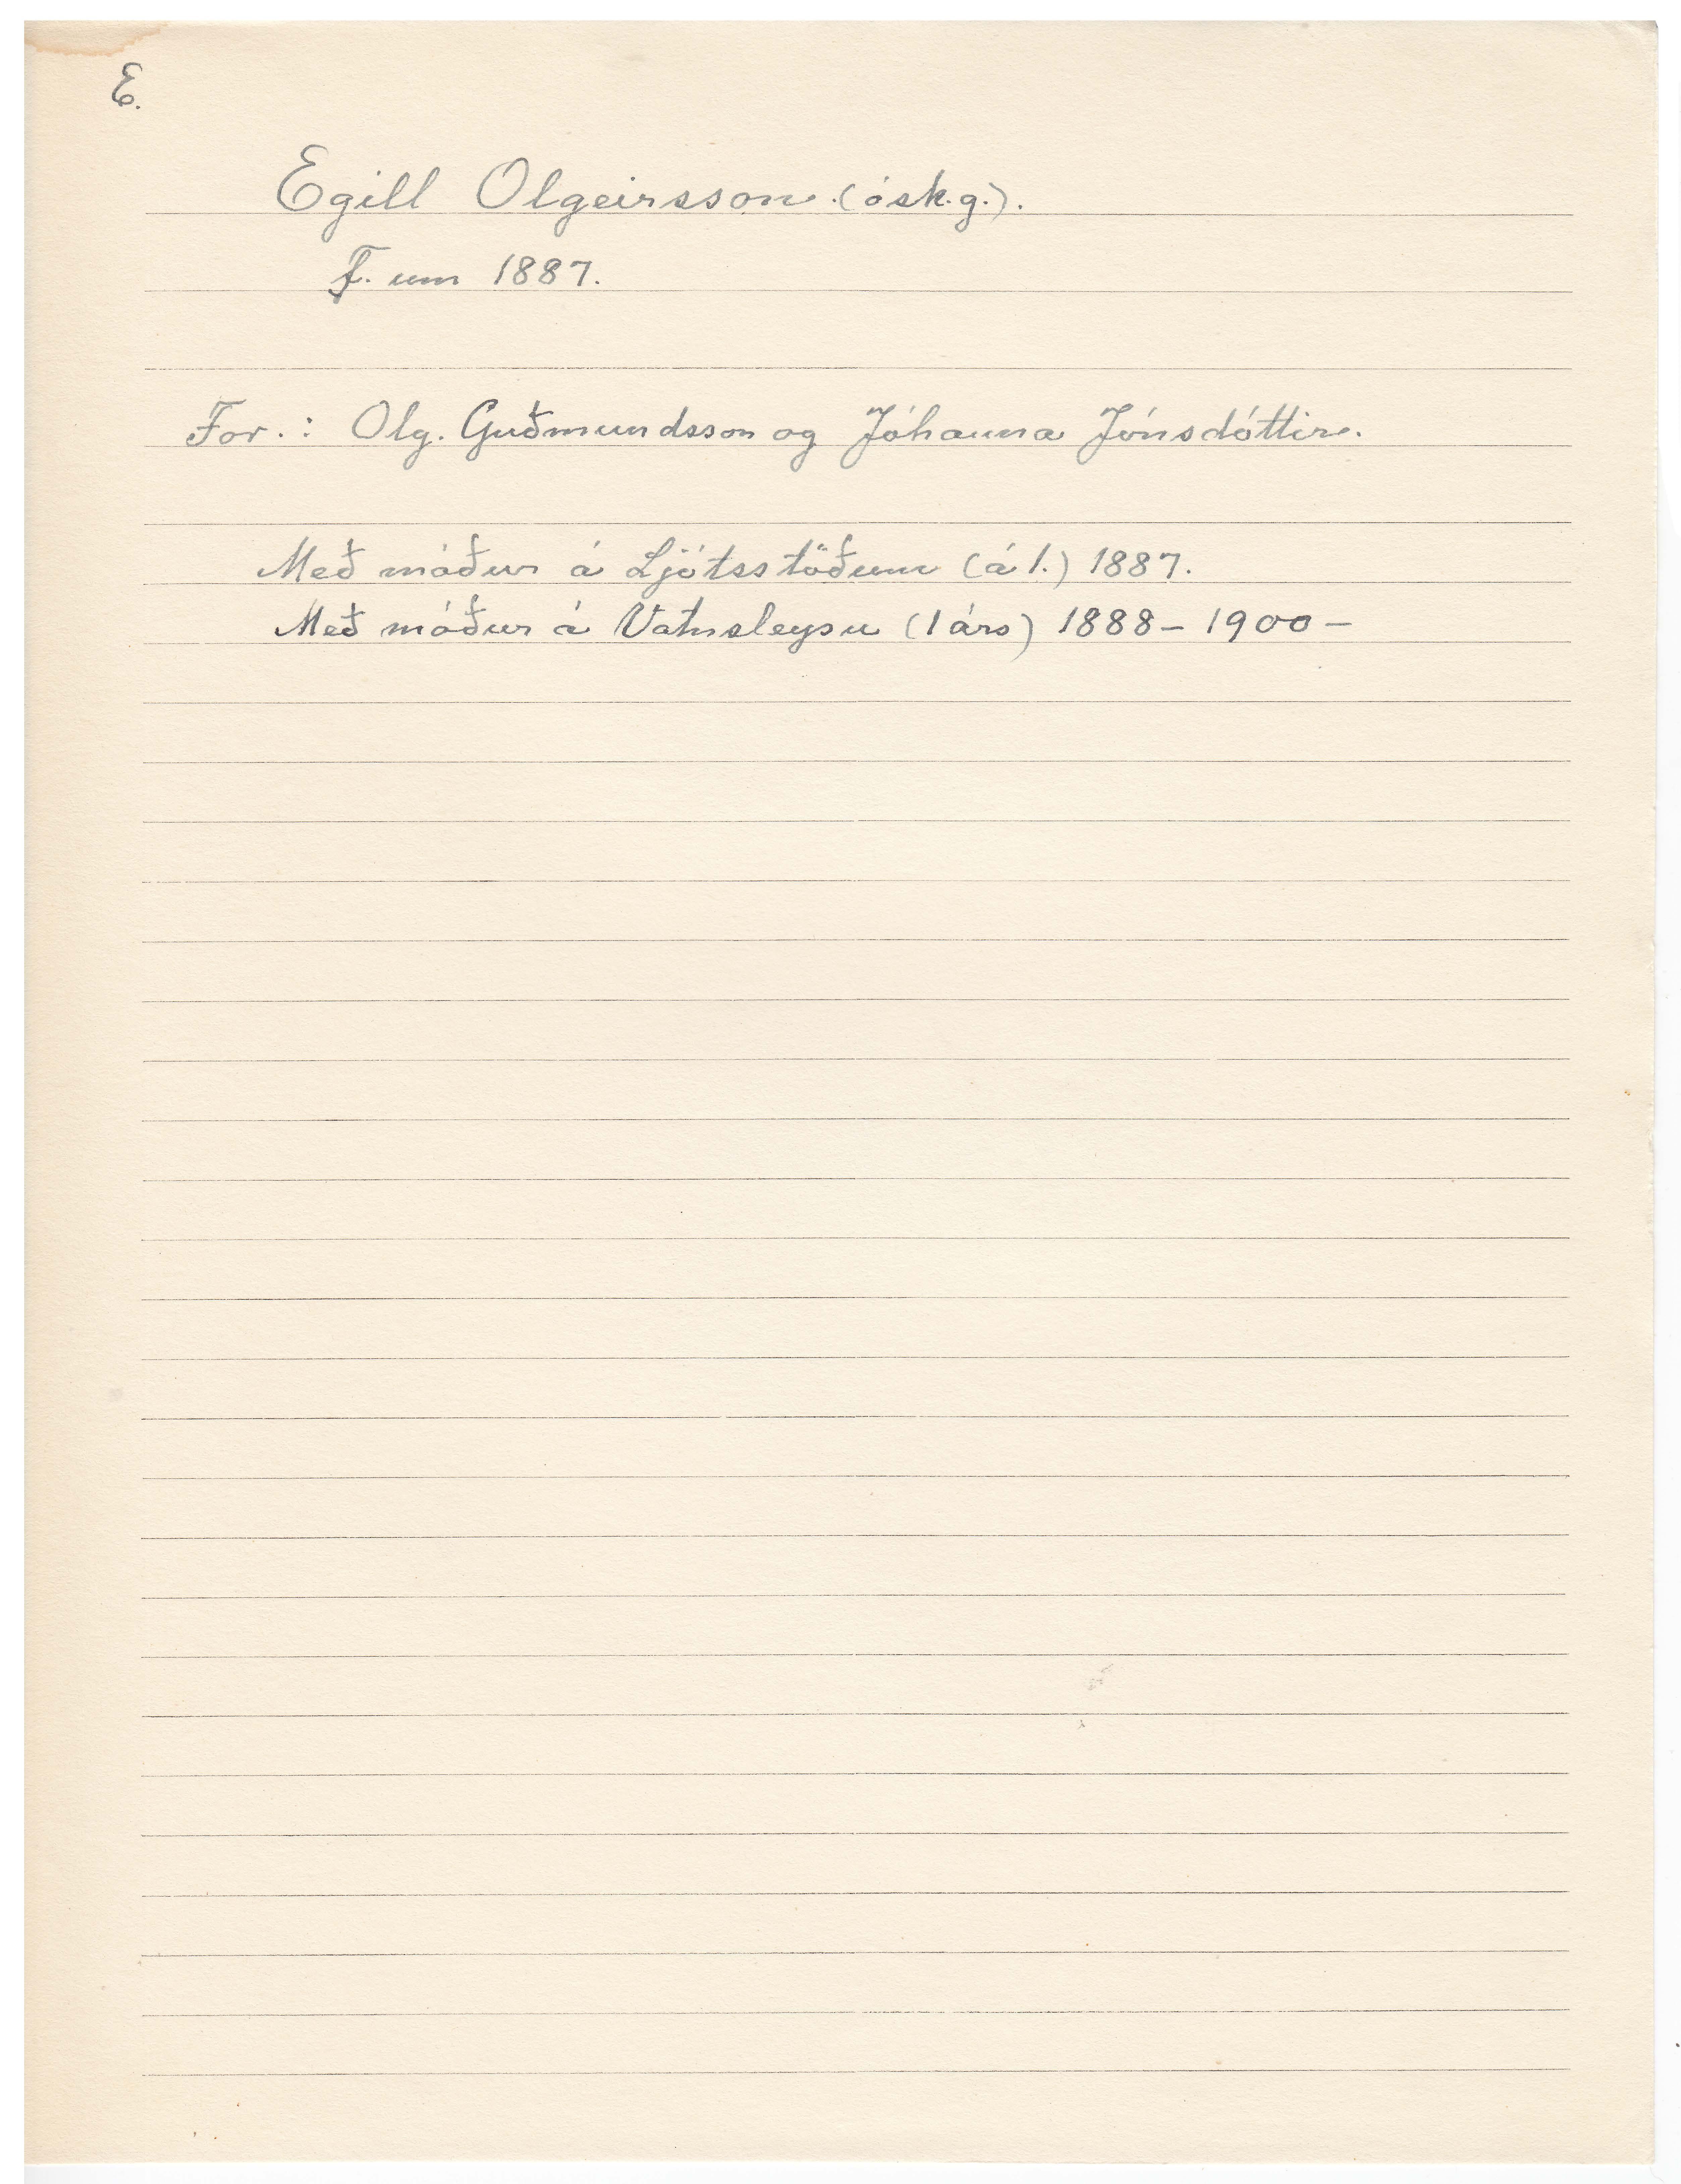 E.
Egill Olgeirsson. (ósk.g.).
F. um 1887.
For.: Olg. Guðmundsson og Jóhanna Jónsdóttir.
Með móður á Ljótsstöðum (á 1.) 1887.
Með móður á Vatnsleysu (1 árs) 1888 – 1900 –